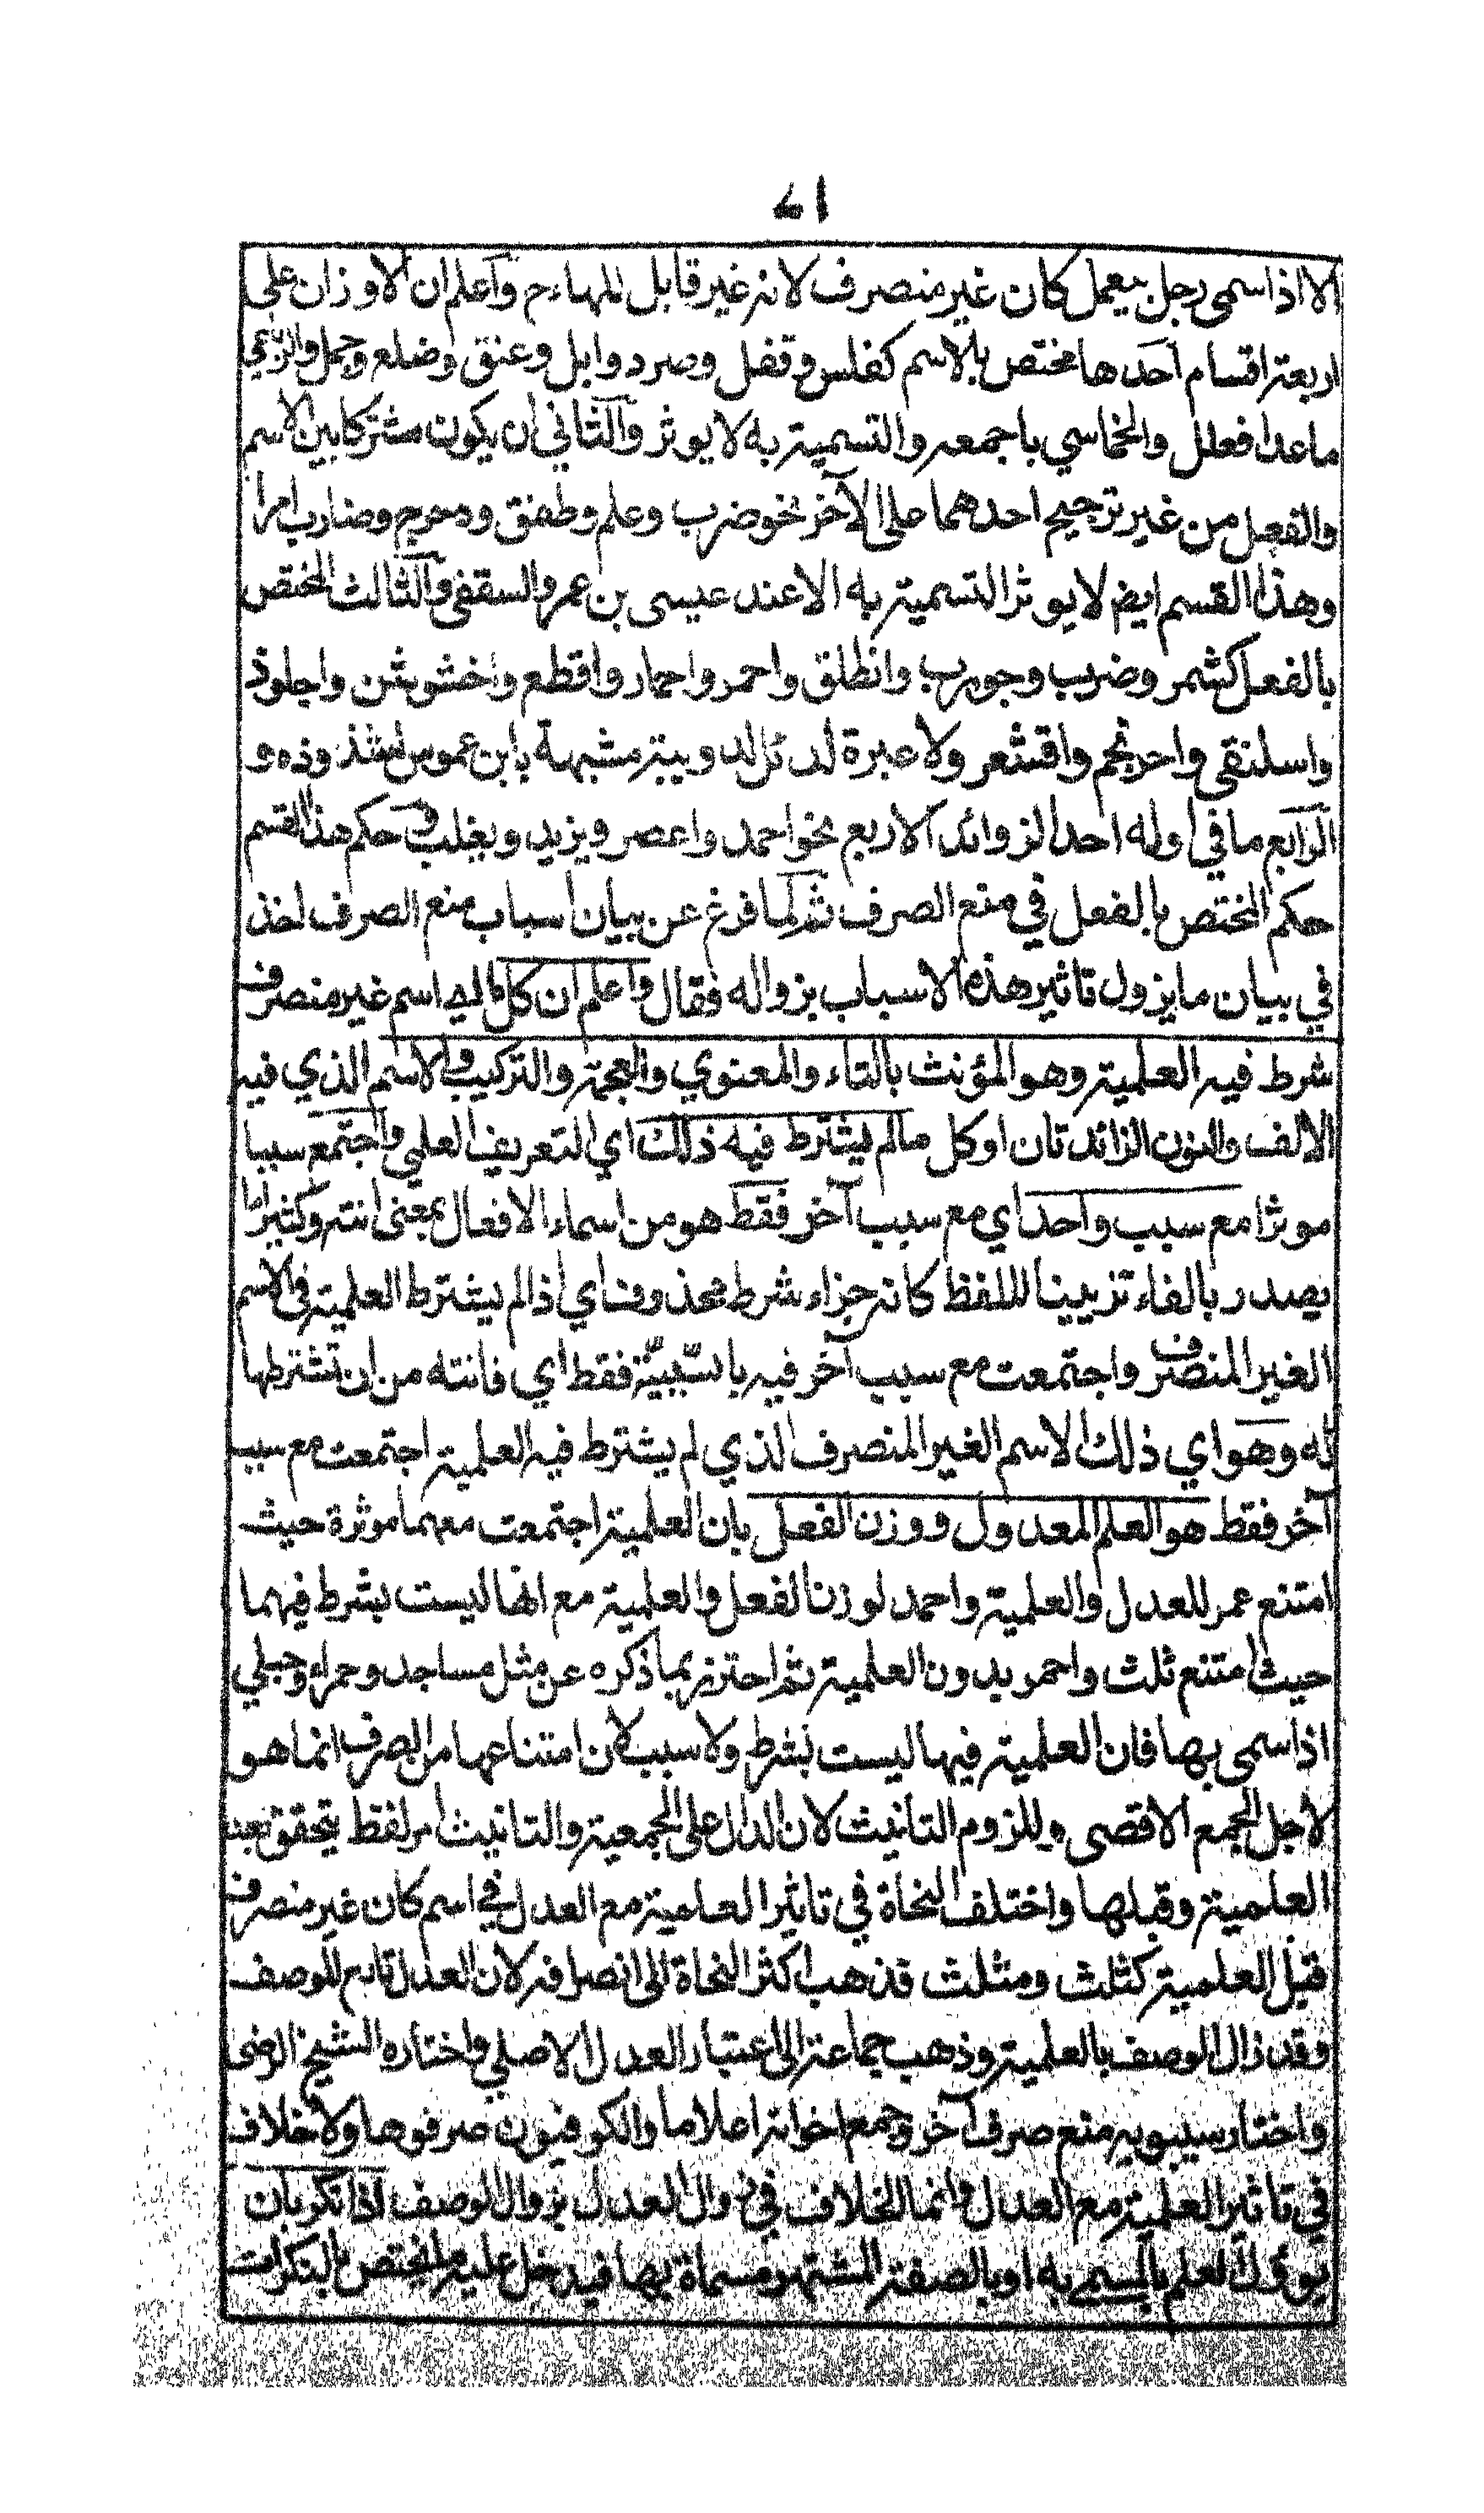 ١٦
الا اذا سمى رجل بيعمل كان غير منصرف لانه غير قابل للهاء ح واعلم ان الاوزان على
اربعة اقسام احدها مختص بالاسم كفلس وقفل وصرد وابل وعنق وضلع وجمل والرباعي
ماعدا فعلل والخماسي باجمعه والتسمية به لا يوثر والثاني ان يكون مشتركا بين الاسم
والفعل من غير ترجيح احدهما على الآخر نحو ضرب وعلم وطفق ودحرج وضارب امرا
وهذا القسم ايض لا يوثر التسمية به الا عند عيسى بن عمرو السقفى والثالث المختص
بالفعل كشمر وضرب وجورب وانطلق واحمر واحمار واقطع واخشوشن واجلوذ
واسلنقى واحرنجم واقشعر ولا عبرة لدئل لدويبة مشبهة بابن عموس لشذوذه و
الرابع ما في اوله احد الزوائد الاربع نحو احمد واعصر ويزيد ويغلب في حكم هذا القسم
حكم المختص بالفعل في منع الصرف ثم لما فرغ عن بيان اسباب منع الصرف اخذ
في بيان ما يزول تاثير هذه الاسباب بزواله فقال واعلم ان كل ما اي اسم غير منصرف
شرط فيه العلمية وهو المؤنث بالتاء والمعنوي والعجمة والتركيب والاسم الذي فيه
الالف والنون الزائدتان او كل مالم يشترط فيه ذلك اي التعريف العلمي واجتمع سببا
موثرا مع سبب واحد اي مع سبب آخر فقط هو من اسماء الافعال بمعنى انته وكثيرا ما
يصدر بالفاء تزيينا لللفظ كانه جزاء شرط محذوف اي اذا لم يشترط العلمية فى الاسم
الغير المنصرف واجتمعت مع سبب آخر فيه بالسببية فقط اي فانته من ان تشترطها
له وهو اي ذلك الاسم الغير المنصرف الذي لم يشترط فيه العلمية اجتمعت مع سبب
آخر فقط هو العلم المعدول ووزن الفعل بان العلمية اجتمعت معهما موثرة حيث
امتنع عمر للعدل والعلمية واحمد لوزن الفعل والعلمية مع انها ليست بشرط فيهما
حيث امتنع ثلث واحمر بدون العلمية ثم احترز بما ذكره عن مثل مساجد وحمراء وحبلي
اذا سمى بها فان العلمية فيها ليست بشرط ولا سبب لان امتناعها من الصرف انما هو
لاجل الجمع الاقصى وللزوم التانيث لان الدال على الجمعية والتانيث امر لفظ يتحقق بعد
العلمية وقبلها واختلف النحاة في تاثير العلمية مع العدل في اسم كان غير منصرف
قبل العلمية كثلث ومثلث فذهب اكثر النحاة الى انصرافه لان العدل تابع للوصف
وقد زال الوصف بالعلمية وذهب جماعة الى اعتبار العدل الاصلي واختاره الشيخ الرضى
واختار سيبويه منع صرف آخر وجمع اخواته اعلاما والكوفيون صرفوها ولا خلاف
في تاثير العلمية مع العدل وانما الخلاف في زوال العدل بزوال الوصف اذا نكر بان
يوؤل العلم بالمسمى به او بالصفة المشتهر مسماة بها فيدخل عليه ما يختص بالنكرات